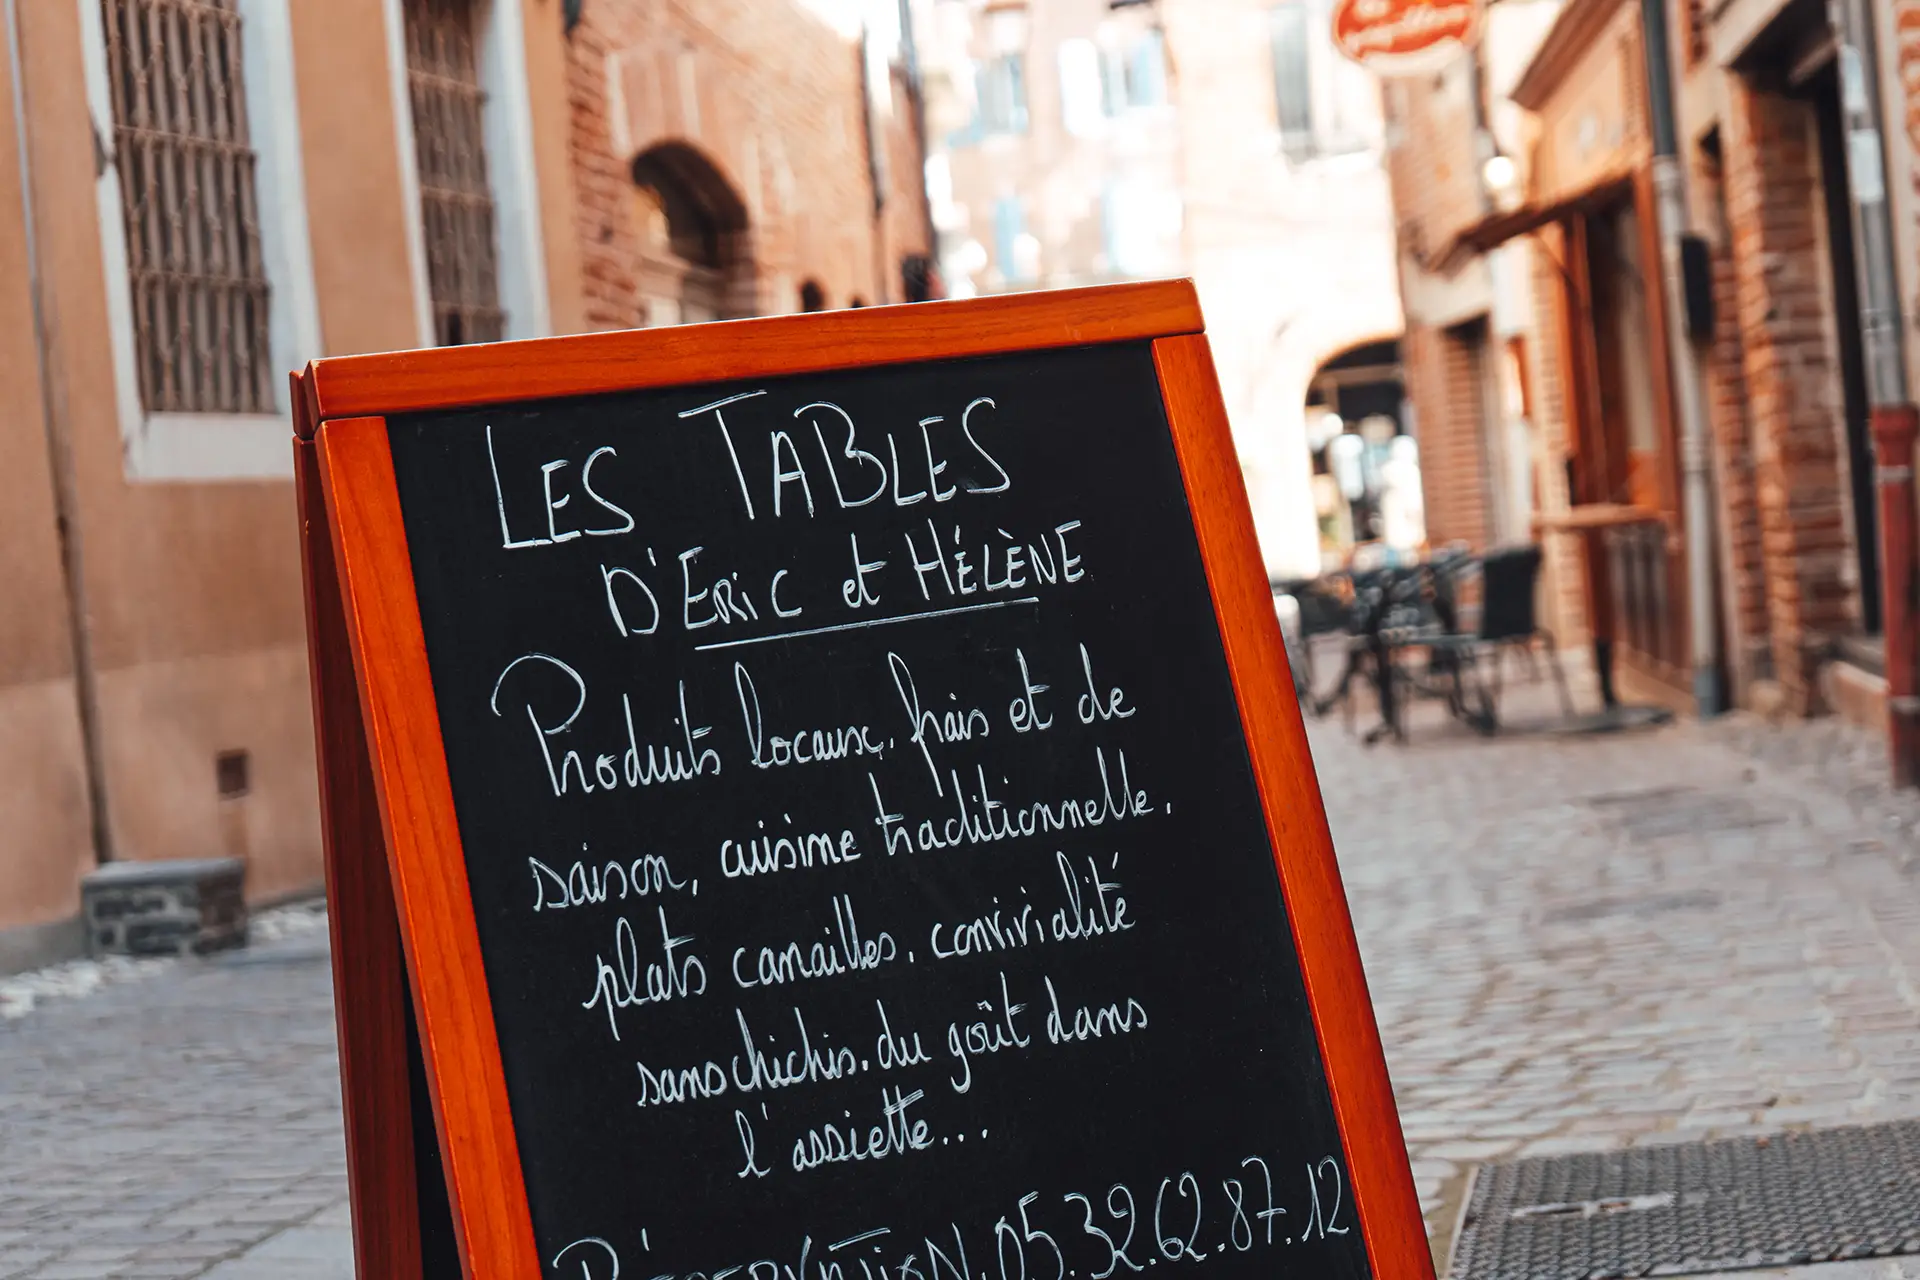 LES TABLES
D'ERIC et HÉLÈNE
Produits locaux, frais et de
saison, cuisine traditionnelle,
plats canailles, convivialité
sans chichis, du goût dans
l'assiette...
RÉSERVATION.05.32.62.87.12